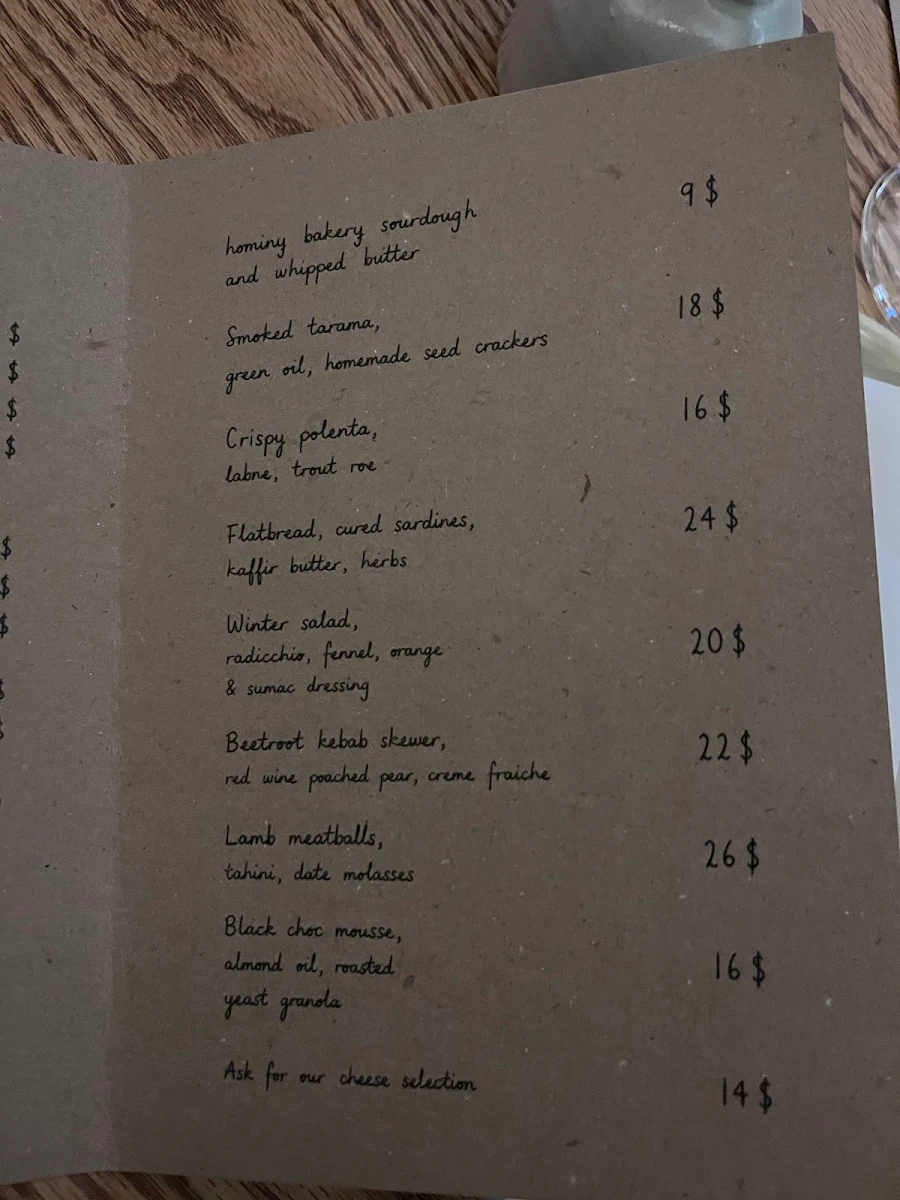 $
$
$
$
$
$
$
$
$
hominy bakery sourdough
and whipped butter
9 $
Smoked tarama,
green oil, homemade seed crackers
18 $
Crispy polenta,
labne, trout roe
16 $
Flatbread, cured sardines,
kaffir butter, herbs
24 $
Winter salad,
radicchio, fennel, orange
& sumac dressing
20 $
Beetroot kebab skewer,
red wine poached pear, creme fraiche
22 $
Lamb meatballs,
tahini, date molasses
26 $
Black choc mousse,
almond oil, roasted
yeast granola
16 $
Ask for our cheese selection
14 $